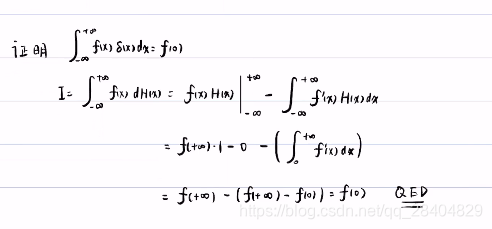 证明 ∫_{-∞}^{+∞} f(x) δ(x) dx = f(0)
I = ∫_{-∞}^{+∞} f(x) dH(x) = f(x) H(x) |_{-∞}^{+∞} - ∫_{-∞}^{+∞} f'(x) H(x) dx
= f(+∞)·1 - 0 - (∫_{0}^{+∞} f'(x) dx)
= f(+∞) - (f(+∞) - f(0)) = f(0) QED
https://blog.csdn.net/qq_28404829